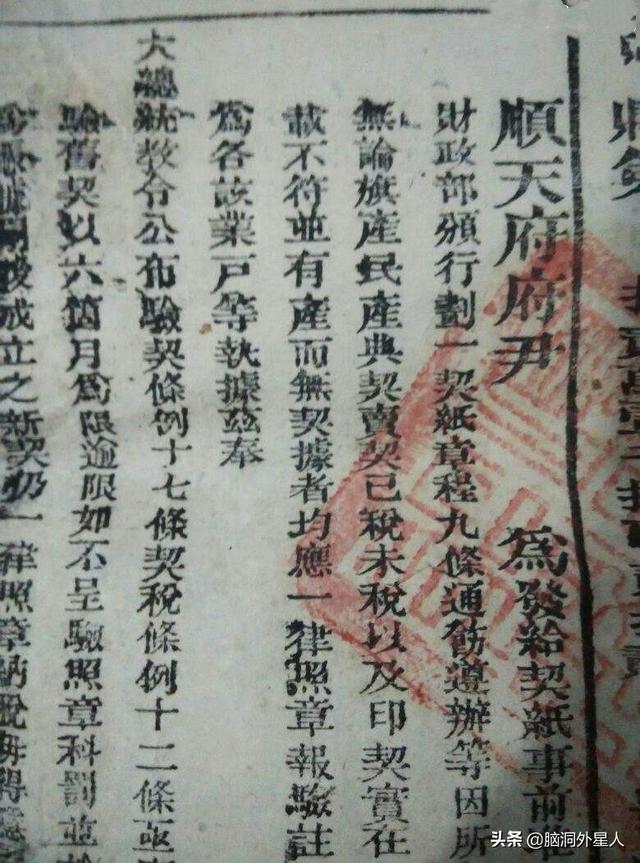 順天府府尹 爲發給契紙事前
財政部頒行劃一契紙章程九條通飭遵辦等因所
無論旗產民產典契賣契已稅未稅以及印契實在
載不符並有產而無契據者均應一律照章報驗註
爲各該業戶等執據茲奉
大總統教令公布驗契條例十七條契稅條例十二條亟
驗舊契以六箇月爲限逾限如不呈驗照章科罰並
成立之新契仍一律照章納稅毋得
头条 @脑洞外星人